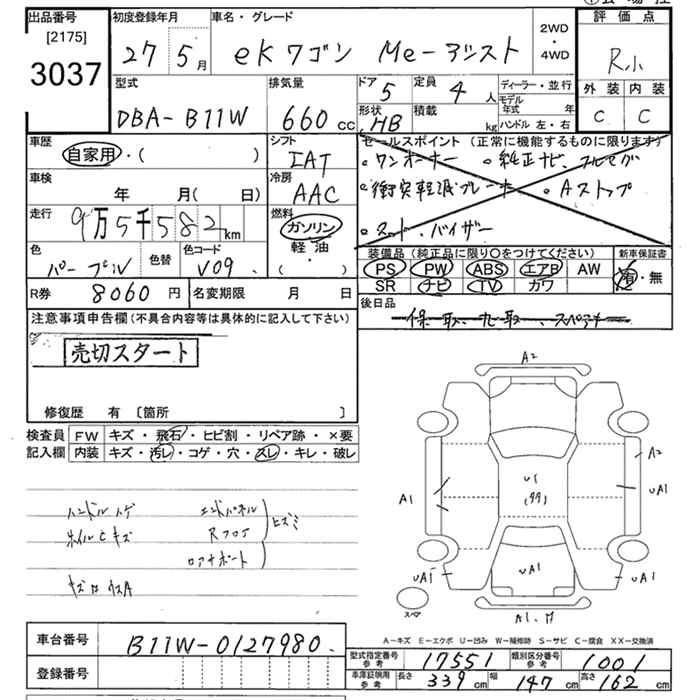 出品番号
[2175]
3037
初度登録年月
27年5月
車名・グレード
eKワゴン Me-アシスト
2WD・4WD
評価点
R小
外装 内装
C C
型式
DBA-B11W
排気量
660cc
ドア 5
定員 4人
形状 HB
積載 kg
ディーラー・並行
モデル年式 年
ハンドル 左・右
車歴
自家用・( )
シフト
IAT
セールスポイント (正常に機能するものに限ります)
・ワンオーナー ・純正ナビ、フルセグ
・衝突軽減ブレーキ ・Aストップ
・バイザー
車検
年 月( 日)
冷房
AAC
走行
9万5千582km
燃料
ガソリン
軽油
・( )
色
パープル
色替
色コード
V09
装備品 (純正品に限り○をつけてください)
新車保証書
PS PW ABS エアB AW
SR ナビ TV カワ
有・無
R券 8060円
名変期限 月 日
後日品
保・取、ナビ取、スペアキー
注意事項申告欄(不具合内容等は具体的に記入して下さい)
売切スタート
修復歴 有 〔箇所 〕
検査員記入欄
FW キズ・飛石・ヒビ割・リペア跡・×要
内装 キズ・汚レ・コゲ・穴・スレ・キレ・破レ
ハンドルハゲ
エンドパネル
Rフロア
ヒズミ
ホイルCキズ
キズ
A2
A2
A1
U1
(99)
UA1
UA1
UA1
UA1
スペア
A1.
A-キズ E-エクボ U-凹み W-補修跡 S-サビ C-腐食 XX-交換済
車台番号
B11W-0127980.
登録番号
型式指定番号 参考
17551
類別区分番号 参考
1001
車庫証明用 参考
長さ 339cm
幅 147cm
高さ 162cm